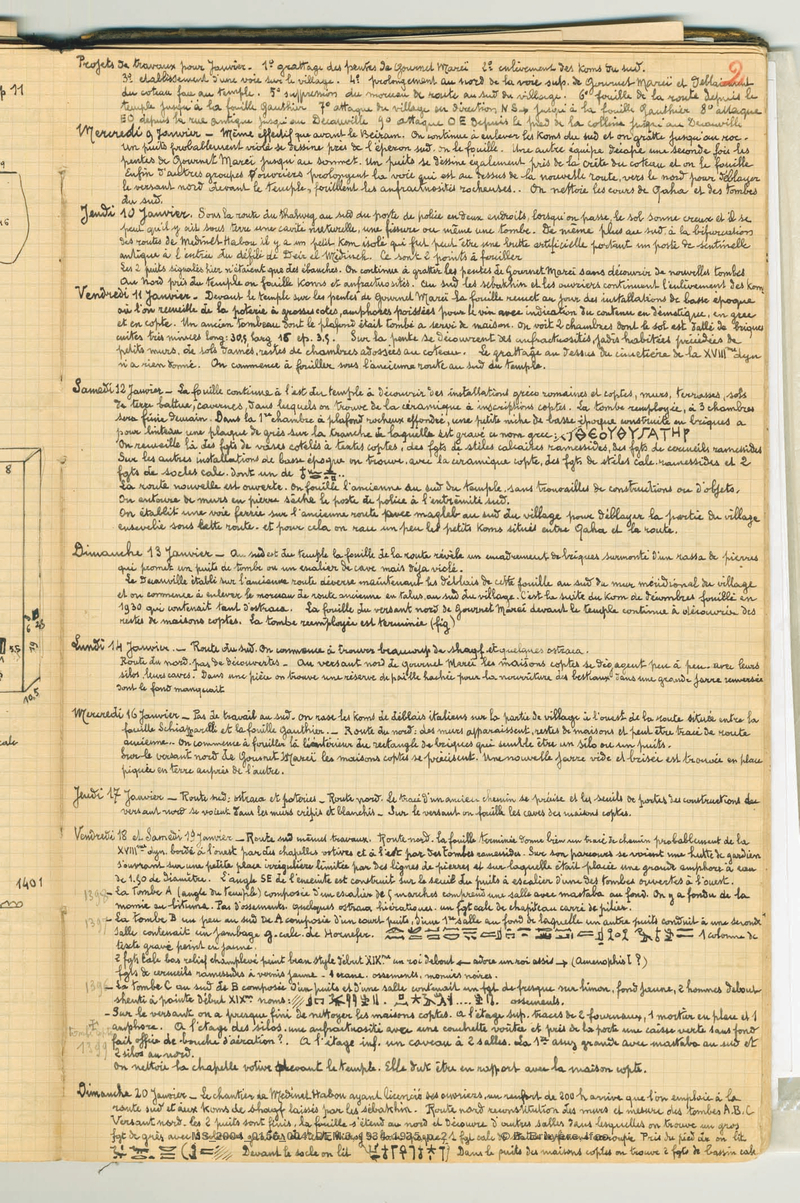 2
Projets de travaux pour Janvier. 1° grattage des pentes de Gournet Mareï 2° enlèvement des Koms du sud.
3° etablissement d'une voie sur le village. 4° prolongement au nord de la voie sup. de Gournet Mareï et Deblaiement
du coteau fau au temple. 5° supression du morceau de route au sud du village. 6° fouille de la route depuis le
temple jusqu'à la fouille Gauthier 7° attaque du village en direction N.S. jusqu'à la fouille Gauthier 8° attaque
EO depuis la rue antique jusqu'au Decauville 9° attaque OE Depuis le pied de la colline jusqu'au Decauville
Mercredi 9 Janvier - Même effectif que avant le Beiram. On continue à enlever les Koms du sud et on gratte jusqu'au roc.
Un puits probablement violé se dessine près de l'éperon sud. on le fouille. Une autre équipe décape une seconde fois les
pentes de Gournet Mareï jusqu'au sommet. Un puits se dessine également près de la crête du coteau et on le fouille
Enfin d'autres groupes d'ouvriers prolongent la voie qui est au dessus de la nouvelle route, vers le nord pour déblayer
le versant nord devant le temple, fouillent les anfractuosités rocheuses.. On nettoie les cours de Qaha et des tombes
du sud.
Jeudi 10 Janvier. Sous la route du thalweg au sud du poste de police en deux endroits, lorsqu'on passe, le sol sonne creux et il se
peut qu'il y ait sous terre une cavité naturelle, une fissure ou même une tombe. De même plus au sud à la bifurcation
des routes de Medinet Habou il y a un petit Kom isolé qui fut peut être une butte artificielle portant un poste de sentinelle
antique à l'entrée du défilé de Deir el Médineh. Ce sont 2 points à fouiller
Les 2 puits signalés hier n'étaient que des ébauches. On continue à gratter les pentes de Gournet Mareï sans découvrir de nouvelles tombes
Au Nord près du temple on fouille Koms et anfractuosités. Au sud les sebakhin et les ouvriers continuent l'enlèvement des Koms
Vendredi 11 Janvier - Devant le temple sur les pentes de Gournet Mareï la fouille remet au jour des installations de basse epoque
où l'on recueille de la poterie à grosses cotes, amphores poissées pour le vin avec indication du contenu en démotique, en grec
et en copte. Un ancien tombeau dont le plafond était tombé a servi de maison. On voit 2 chambres dont le sol est dallé de briques
cuites très minces long: 30,5 larg 15 ep. 3,5. Sur la pente se découvrent des anfractuosités jadis habitées précédées de
petits murs, de sols damés, restes de chambres adossées au coteau. Le grattage au dessus du cimetière de la XVIIIme dyn
n'a rien donné. On commence à fouiller sous l'ancienne route au sud du temple.
Samedi 12 Janvier - La fouille continue à l'est du temple à découvrir des installations gréco romaines et coptes, murs, terrasses, sols
de terre battue, cavernes, dans lesquels on trouve de la céramique à inscriptions coptes. La tombe remployée, à 3 chambres
sera finie demain. Dans la 1re chambre à plafond rocheux effondré, une petite niche de basse époque construite en briques a
pour linteau une plaque de grès sur la tranche de laquelle est gravé ce nom grec:
On recueille là des fgts de vases cotelés à textes coptes, des fgts de stèles calcaires ramessides, des fgts de cercueils ramessides
Sur les autres installations de basse époque on trouve, avec la céramique copte, des fgts de stèles calc. ramessides et 2
fgts de socles calc. dont un de
La route nouvelle est ouverte. On fouille l'ancienne au sud du temple, sans trouvailles de constructions ou d'objets.
On entoure de murs en pierre sèche le poste de police à l'extrémité sud.
On établit une voie ferrée sur l'ancienne route avec magleb au sud du village pour déblayer la partie du village
ensevelie sous cette route. et pour cela on rase un peu les petits Koms situés entre Qaha et la route.
Dimanche 13 Janvier - Au sud est du temple la fouille de la route révèle un encadrement de briques surmonté d'un rassa de pierres
qui peut être un puits de tombe ou un escalier de cave mais déjà violé.
Le Decauville établi sur l'ancienne route déverse maintenant les déblais de cette fouille au sud du mur méridional du village
et on commence à enlever le morceau de route ancienne en talus, au sud du village. C'est la suite du kom de décombres fouillé en
1930 qui contenait tant d'ostraca. La fouille du versant nord de Gournet Mareï devant le temple continue à découvrir des
restes de maisons coptes. La tombe reemployée est terminée (fig)
Lundi 14 Janvier - Route du sud. On commence à trouver beaucoup de shagf et quelques ostraca.
Route du nord. pas de découvertes - Au versant nord de Gournet Mareï les maisons coptes se dégagent peu à peu. avec leurs
silos leurs caves. Dans une pièce on trouve une réserve de paille hachée pour la nourriture des bestiaux dans une grande jarre renversée
dont le fond manquait
Mercredi 16 Janvier - Pas de travail au sud. On rase les Koms de déblais italiens sur la partie de village à l'ouest de la route située entre la
fouille Schiaparelli et la fouille Gauthier. - Route du nord: des murs apparaissent, restes de maisons et peut être tracé de route
ancienne. On commence à fouiller là l'intérieur du rectangle de briques qui semble être un silo ou un puits.
Sur le versant nord de Gournet Mareï les maisons coptes se précisent. Une nouvelle jarre vide et brisée est trouvée en place
piquée en terre auprès de l'autre.
Jeudi 17 Janvier - Route sud: ostraca et poteries - Route nord. Le tracé d'un ancien chemin se précise et les seuils de portes des constructions du
versant nord se voient dans les murs crépis et blanchis. Sur le versant on fouille les caves des maisons coptes.
Vendredi 18 et Samedi 19 Janvier - Route sud mêmes travaux. Route nord. la fouille terminée donne bien un tracé de chemin probablement de la
XVIIIme dyn. bordé à l'ouest par des chapelles votives et à l'est par des tombes ramessides. Sur son parcours se voient une hutte de gardien
s'ouvrant sur une petite place irrégulière limitée par des lignes de pierres et sur laquelle était placée une grande amphore à eau
de 1.50 de diamètre. L'angle SE de l'enceinte est construit sur le seuil du puits à escalier d'une des tombes ouvertes à l'ouest.
- La tombe A (angle du temple) composée d'un escalier de marches contenant une salle avec mastaba au fond. On y a fondu de la
momie au bitume. Pas d'ossements. quelques ostraca hiératiques. un fgt calc. de chapiteau carré de pilier.
- La tombe B un peu au sud de A composée d'un court puits, d'une 1re salle au fond de laquelle un autre puits conduit à une seconde
salle contenait un jambage g. calc. de Hornefer. 1 colonne de
texte gravé peint en jaune.
2 fgts calc bas relief champlevé peint beau style début XIXme un roi debout ← adore un roi assis → (Amenophis I ?)
fgts de cercueils ramessides à vernis jaune. 1 crane. ossements, momies noires.
- La tombe C au sud de B composée d'un puits et d'une salle contenait un fgt de fresque sur limon, fond jaune, 2 hommes debout
shenti à pointe début XIXme noms: ossements.
- Sur le versant on a presque fini de nettoyer les maisons coptes. A l'étage sup. traces de 2 fourneaux, 1 mortier en place et 1
amphore. A l'étage des silos. une anfractuosité avec une couchette voûtée et près de la porte une caisse verte sans fond
fait office de bouche d'aération?. A l'étage inf. un caveau à 2 salles. La 1re assez grande avec mastaba au sud et
2 silos au nord.
On nettoie la chapelle votive devant le temple. Elle dut être en rapport avec la maison copte.
Dimanche 20 Janvier - Le chantier de Medinet Habou ayant licencié des ouvriers, un renfort de 200 h arrive que l'on emploie à la
route sud et aux Koms de shagf laissés par les sebakhin. Route nord reconstitution des murs et mesure des tombes A.B.C
Versant nord. les 2 puits sont finis, la fouille s'étend au nord et découvre d'autres salles dans lesquelles on trouve un gros
fgt de grès avec
Devant le socle on lit Dans le puits des maisons coptes on trouve 2 fgts de bassin calc
1401
10.5